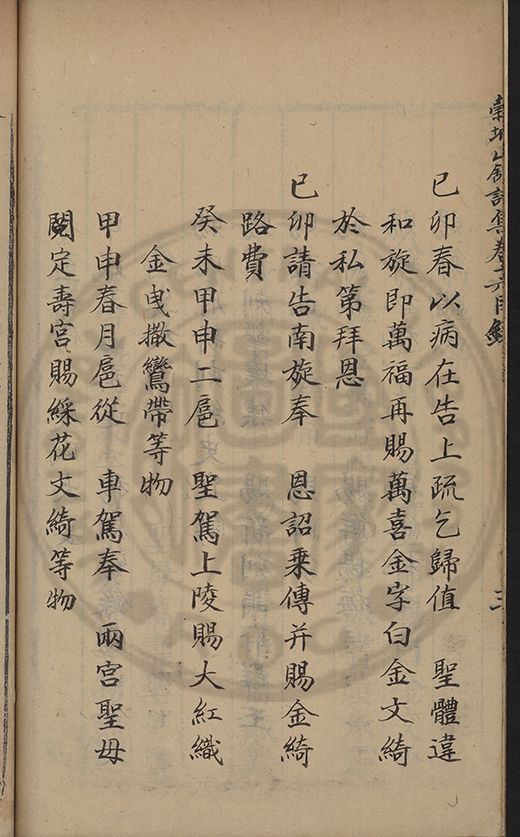 山舘詩集卷十六目錄
三
己卯春以病在告上疏乞歸值　聖體違
和旋即萬福再賜萬喜金字白金文綺
於私第拜恩
己卯請告南旋奉　恩詔乗傳并賜金綺
路費
癸未甲申二扈　聖駕上陵賜大紅織
金曵撒鸞帶等物
甲申春月扈從　車駕奉　兩宮聖母
閱定壽宮賜綵花文綺等物